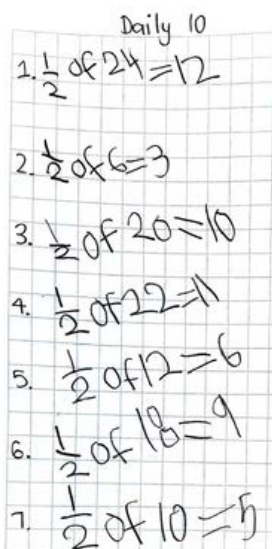 Daily 10
1. 1/2 of 24=12
2. 1/2 of 6=3
3. 1/2 of 20=10
4. 1/2 of 22=11
5. 1/2 of 12=6
6. 1/2 of 18=9
7. 1/2 of 10=5